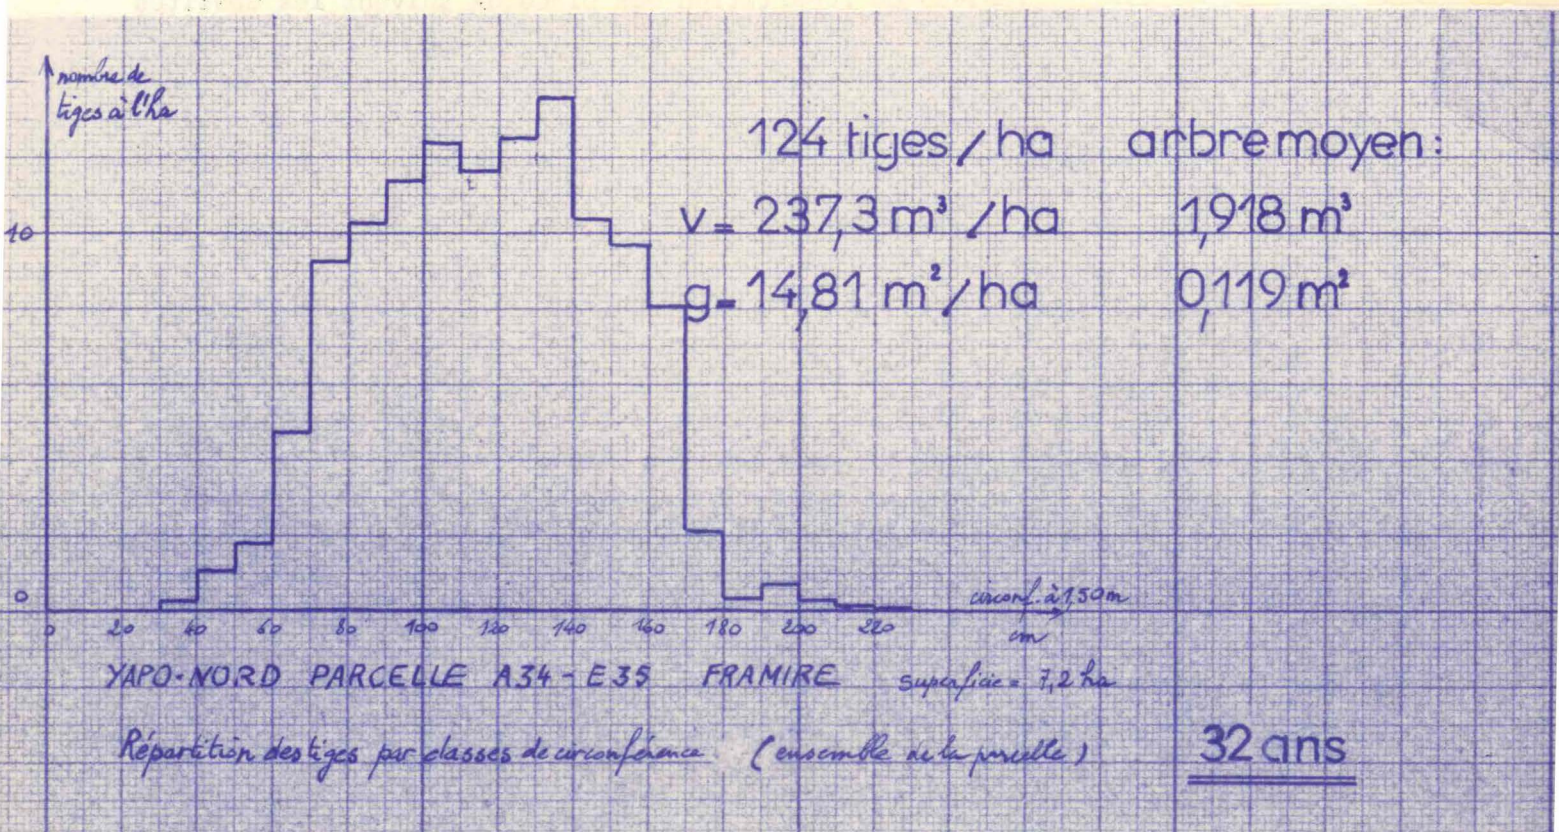 nombre de
tiges à l'ha
124 tiges / ha arbre moyen :
v = 237,3 m³ / ha 1,918 m³
g = 14,81 m² / ha 0,119 m²
10
0
0 20 40 60 80 100 120 140 160 180 200 220
circonf. à 1,50 m
cm
YAPO-NORD PARCELLE A34 - E35 FRAMIRE superficie = 7,2 ha
Répartition des tiges par classes de circonférence (ensemble de la parcelle)
32 ans